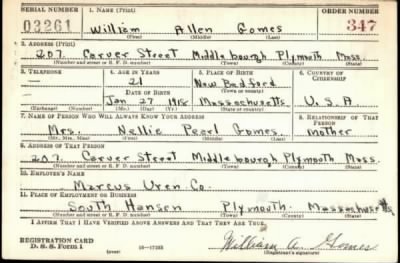 SERIAL NUMBER 1. NAME (Print) ORDER NUMBER
03261 William Allen Gomes 347
(First) (Middle) (Last)
2. ADDRESS (Print)
207. Carver Street Middlebourgh Plymouth Mass.
(Number and street or R. F. D. number) (Town) (County) (State)
3. TELEPHONE 4. AGE IN YEARS 5. PLACE OF BIRTH 6. COUNTRY OF CITIZENSHIP
— 21 New Bedford
DATE OF BIRTH (Town or county)
Jan 27 Massachusetts U.S.A
(Exchange) (Number) (Mo.) (Day) (Yr.) (State or country)
7. NAME OF PERSON WHO WILL ALWAYS KNOW YOUR ADDRESS 8. RELATIONSHIP OF THAT PERSON
Mrs. Nellie Pearl Gomes. mother
(Mr., Mrs., Miss) (First) (Middle) (Last)
9. ADDRESS OF THAT PERSON
207. Carver Street Middlebourgh Plymouth Mass.
(Number and street or R. F. D. number) (Town) (County) (State)
10. EMPLOYER'S NAME
Marcus Uren Co.
11. PLACE OF EMPLOYMENT OR BUSINESS
South Hansen Plymouth. Massachusetts
(Number and street or R. F. D. number) (Town) (County) (State)
I AFFIRM THAT I HAVE VERIFIED ABOVE ANSWERS AND THAT THEY ARE TRUE.
REGISTRATION CARD
D. S. S. Form 1 16—17105 William A. Gomes
(Registrant's signature)